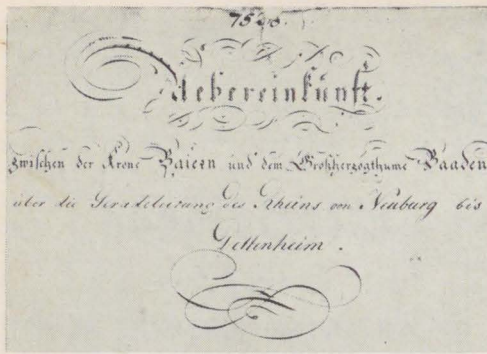 Uebereinkunft.
zwischen der Krone Baiern und dem Großherzogthume Baaden
über die Geradeleitung des Rheins von Neuburg bis
Dettenheim.